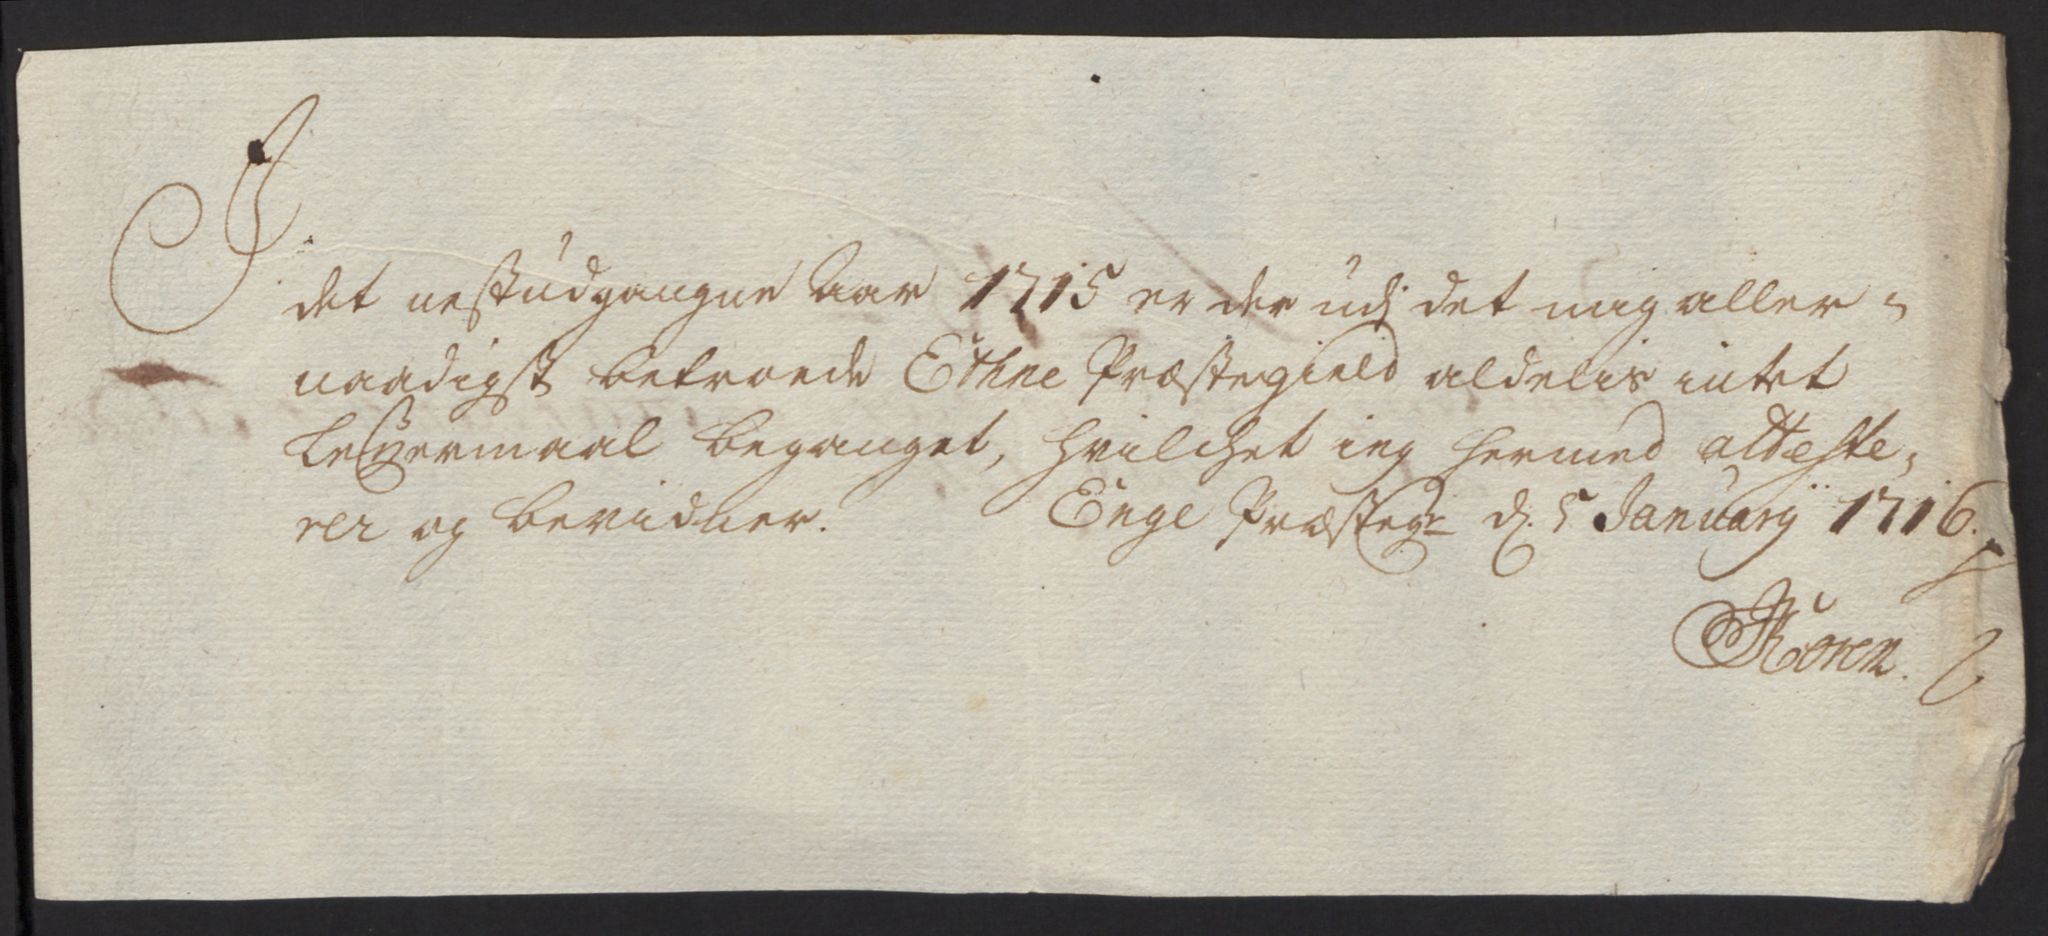 I
det nestudgangne Aar 1715 er der udj det mig aller-
naadigst betroede Ethne Præstegield aldelis intet
Leÿermaal beganget, hvilchet ieg hermed atteste-
rer og bevidner. Enge Præstegr d. 5 Januarij 1716.
Koren.